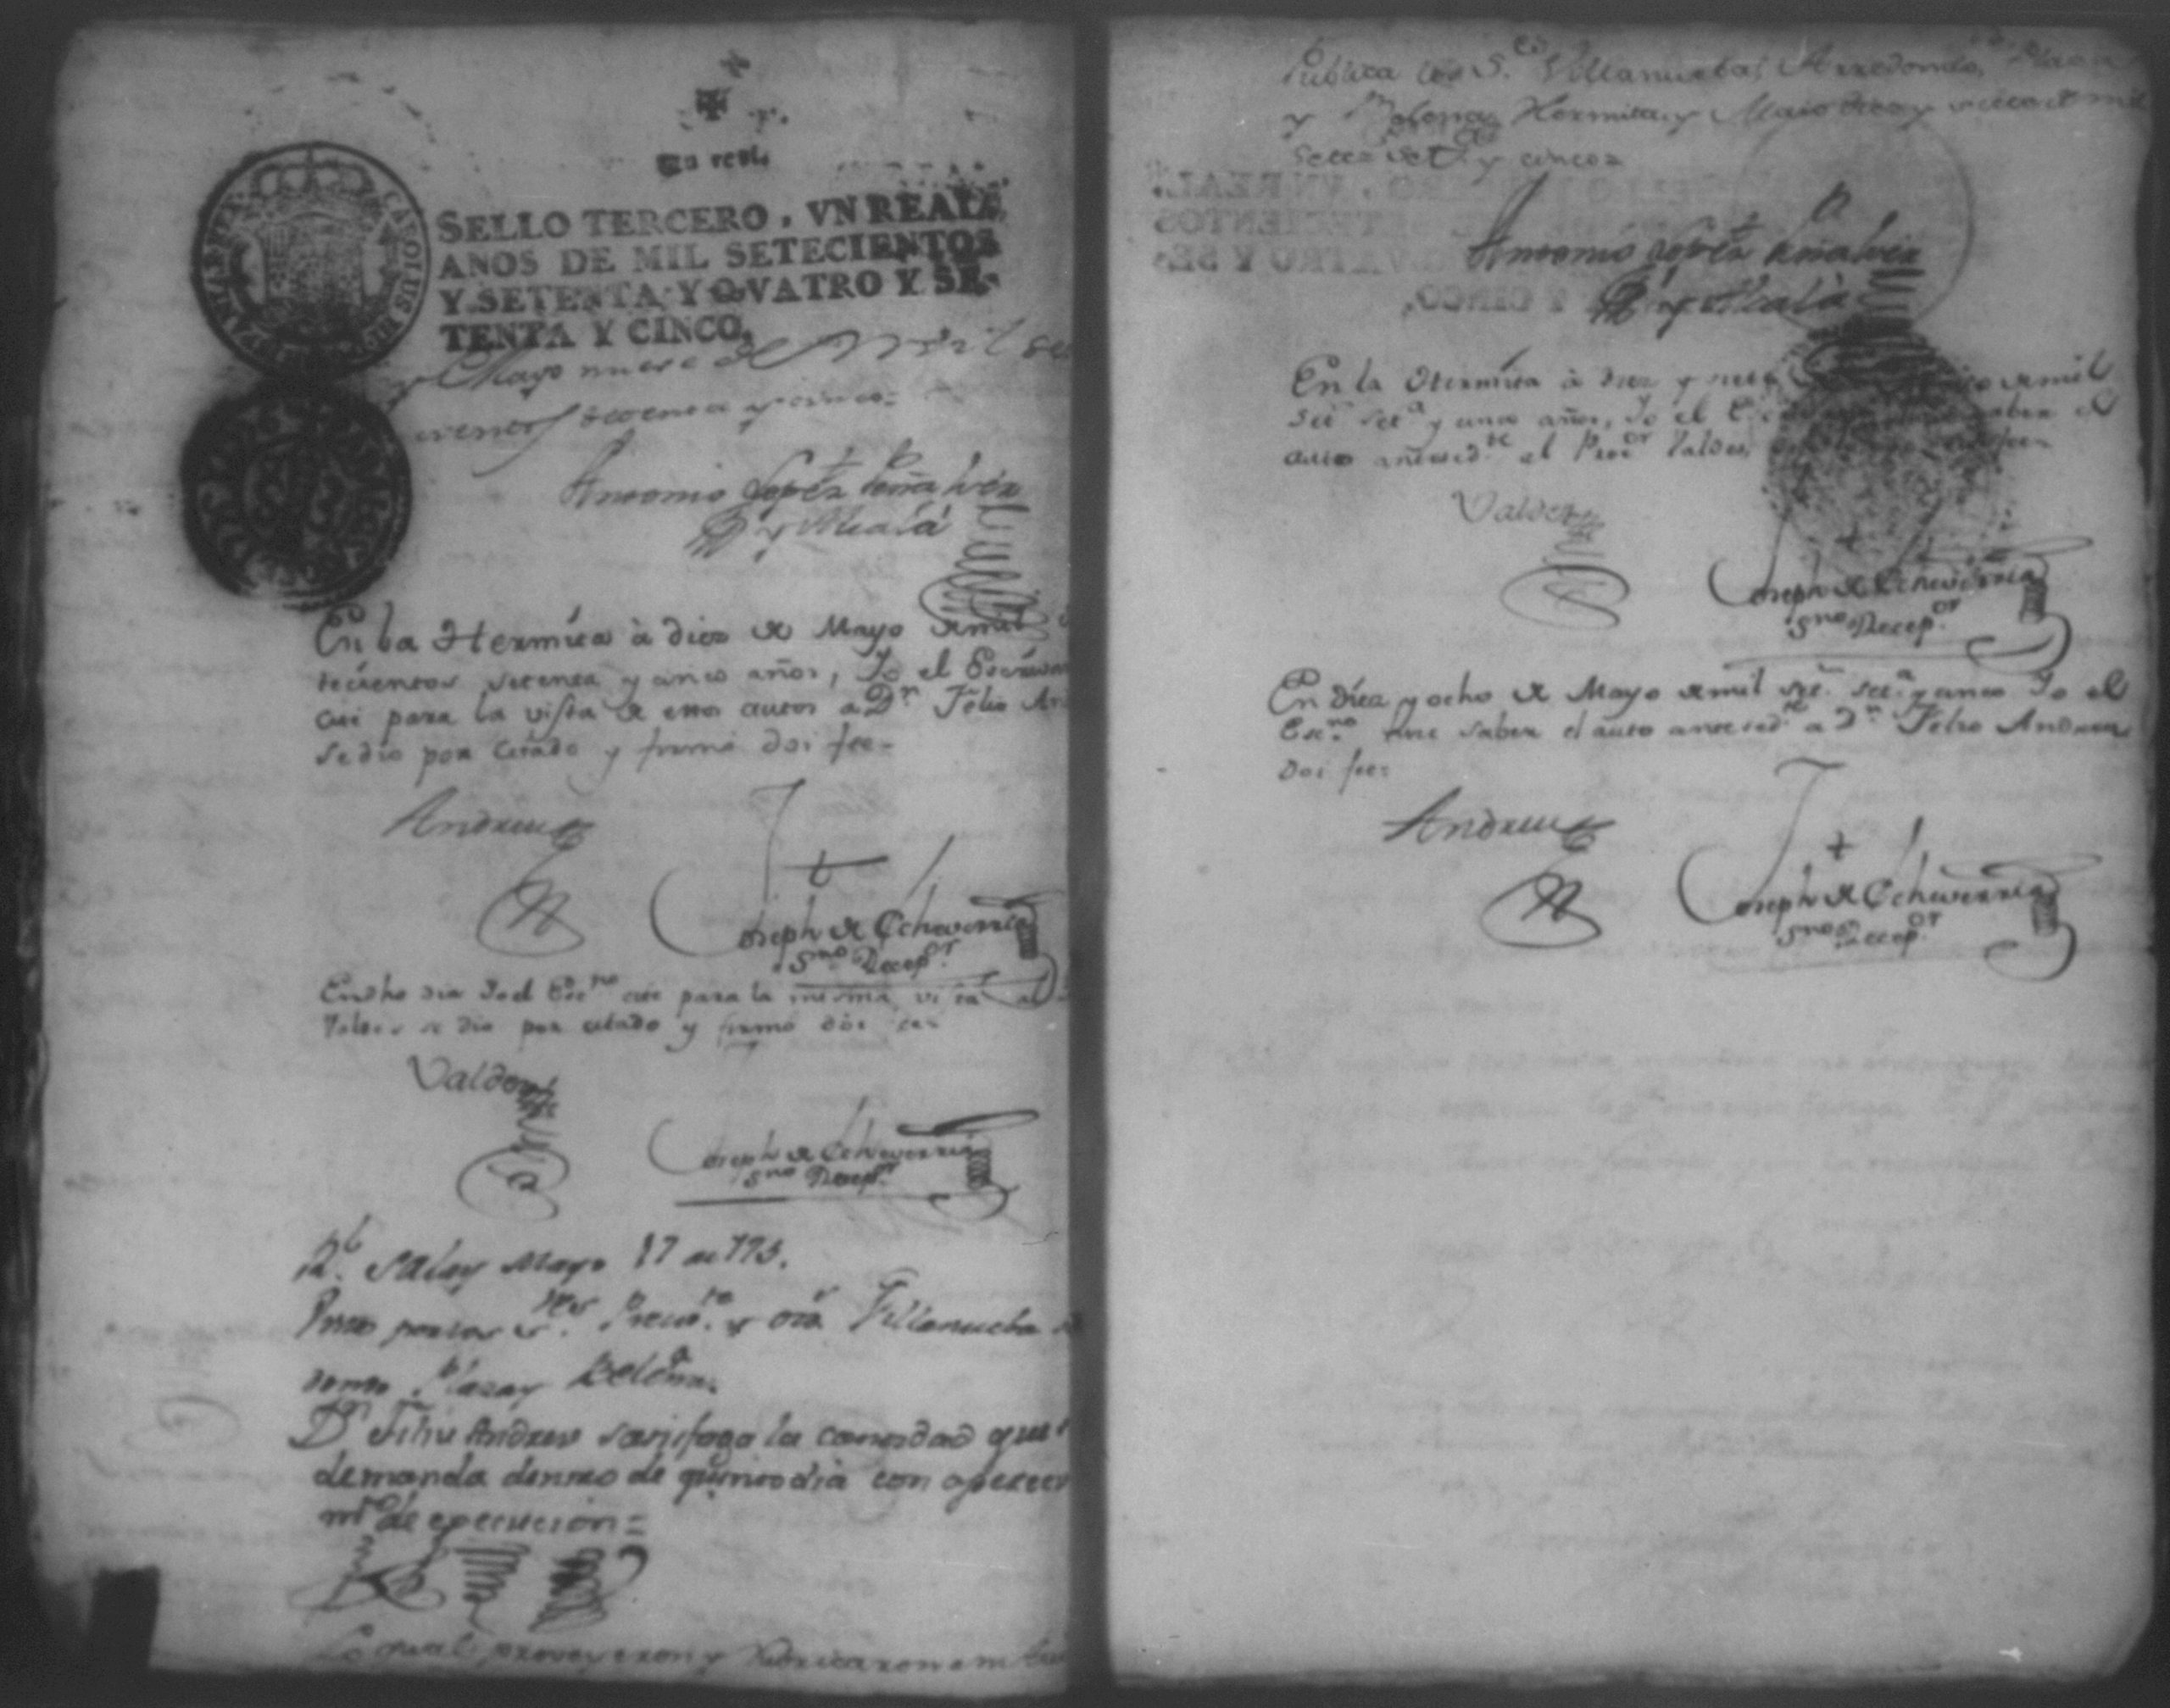 Un real.
SELLO TERCERO, VN REAL,
AÑOS DE MIL SETECIENTOS
Y SETENTA Y QVATRO Y SE-
TENTA Y CINCO.
y Mayo nueve de mil se
cientos setenta y cinco=
Antonio Lopez Peñalver
y Alcala
En la Hermita à dies de Mayo de mil
tecientos setenta y cinco años, Yo el Escrivan
cite para la vista de estos autos a Dn Felis An
se dio por citado y firmó doi fee=
Andreu
Joseph de Echeverria
Sno Recepr
En dho dia Yo el Escno cite para la misma vista al
Valdes se dio por citado y firmó doi fee=
Valdes
Joseph de Echeverria
Sno Recepor
Rl Sala y Mayo 17 de 775.
Villanueba
Plaza y Beleña.
Dn Felis Andreu satisfaga la cantidad que
demanda dentro de quinto dia con aperceb
mto de execucion=
Lo qual proveyeron y rubricaron en
Publica los Ses Villanueba, Arredondo, Plaza
y Beleña Hermita y Maio dies y siete de mil
setesz set y cinco=
Antonio Lopez Peñalver
y Alcalà
En la Hermita à diez y siete de mil
set set y cinco años, Yo el saber el
auto antecedte el Procor Valdes, fee=
Valdes
Joseph de Echeverria
Sno Recepor
En diez y ocho de Mayo de mil set seta y cinco Yo el
Escno hice saber el auto antecedte a Dn Felis Andreu
doi fee=
Andreu
Joseph de Echeverria
Sno Recepor